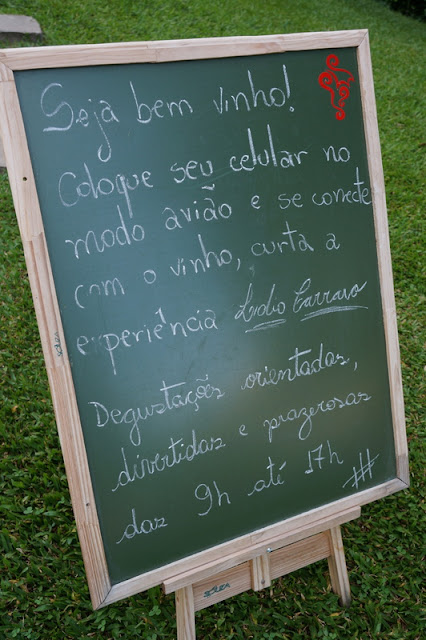 Seja bem vinho!
Coloque seu celular no
modo avião e se conecte
com o vinho, curta a
experiência Lidio Carraro
Degustações orientadas,
divertidas e prazerosas
das 9h até 17h